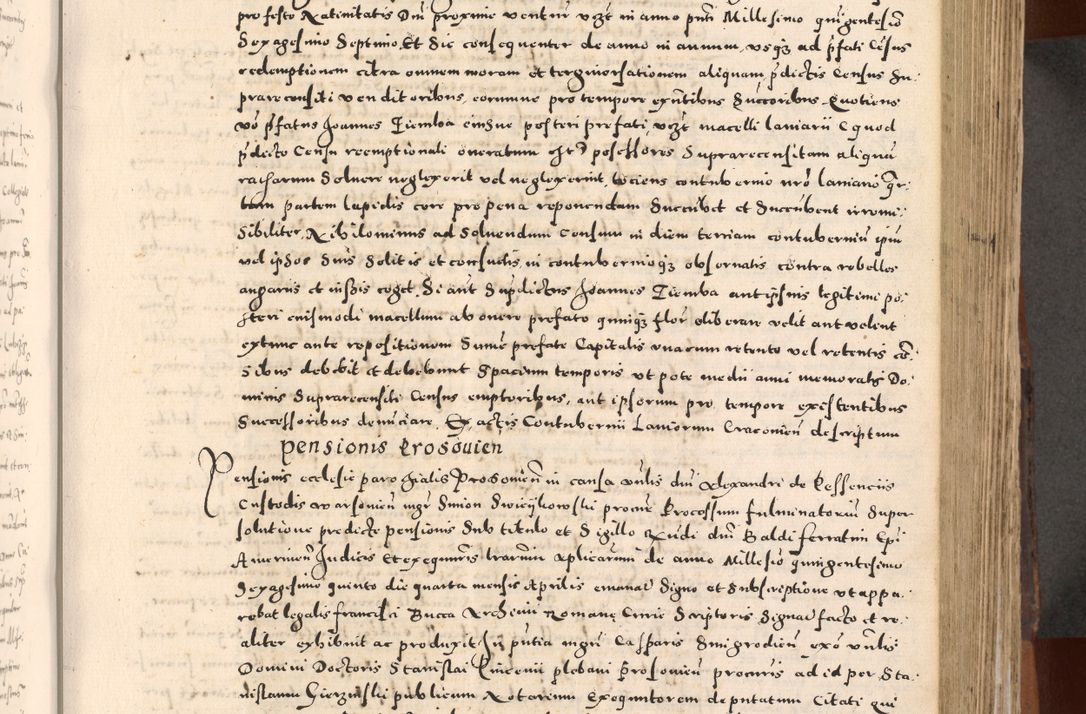 profesto Natiuitatis Dni proxime ventur vzt in anno pnti Millesimo quigentesio
Sexagesimo Septimo. Et Sic consequenter de anno in annum, vsqz ad pfati Cēsus
redemptionem citra omnem moram et tergiuersationem aliquam pdictis Census Su-
prarecensiti venditoribus, eorumue pro tempore exntibus Succoribus. Quotiens
vo pfatus Joannes Ziemba eiusue posteri prefati, vzt macelli laniarii Equod
pdicto Censu reemptionali oneratum possessores Suprarecensitam aliquā
ratharum Soluere neglexerit vel neglexerint, tociens contubernio nro laniario qr-
tam partem lapidis cere pro pena reponendam Succubet et Succubent irremi-
sibiliter, Nihilominus ad Soluendum Censum in diem terciam contubernium ipm
vel ipsos Suis Solitis et consuetis, in contubernioqz obseruatis contra rebelles
angariis et coget. Si aut Supdictus Joannes Ziemba aut ipsius legitimi po-
steri euismodi macellum ab onere prefato quinqz flor eliberare velit aut velent
extunc ante repositionem Summe prefate Capitalis vnacum retento vel retentis cē-
sibus debebit et debebunt Spacium temporis vt pote medii anni memoratis Do-
minis Suprarecensiti Census emptoribus, aut ipsorum pro tempore existentibus
Successoribus denunciare. Ex actis Contubernii Laniorum Cracouien descriptum
Pensionis Prosouien
Pensionis ecclesie parochialis Prosouien in causa vnlis dni Alexandri de Pessenciis
Custodis Warsouien mgr Simon procur Processum fulminatoriu Super
solutione predicte pensionis Sub titulo et Sigillo Rndi dni Baldi ferratini Epi
Amerinen Judicis Et exequutoris lrarum Aplicarum de anno Millesio quingentesimo
Sexagesimo quinto die quarta mensis Aprilis emanat Signo et Subscriptione vt appa-
rebat legalis francisci Bucca Archiuii Romane Curie Scriptoris Signat facto et re-
aliter exhibuit ac produxit In pntia mgri Casparis Smigrodien exo vnlis
Domini Doctoris Stanislai plebani prosouien procuris ad id per Sta-
nislaum publicum Notarium Exequutorem deputatum Citati qui